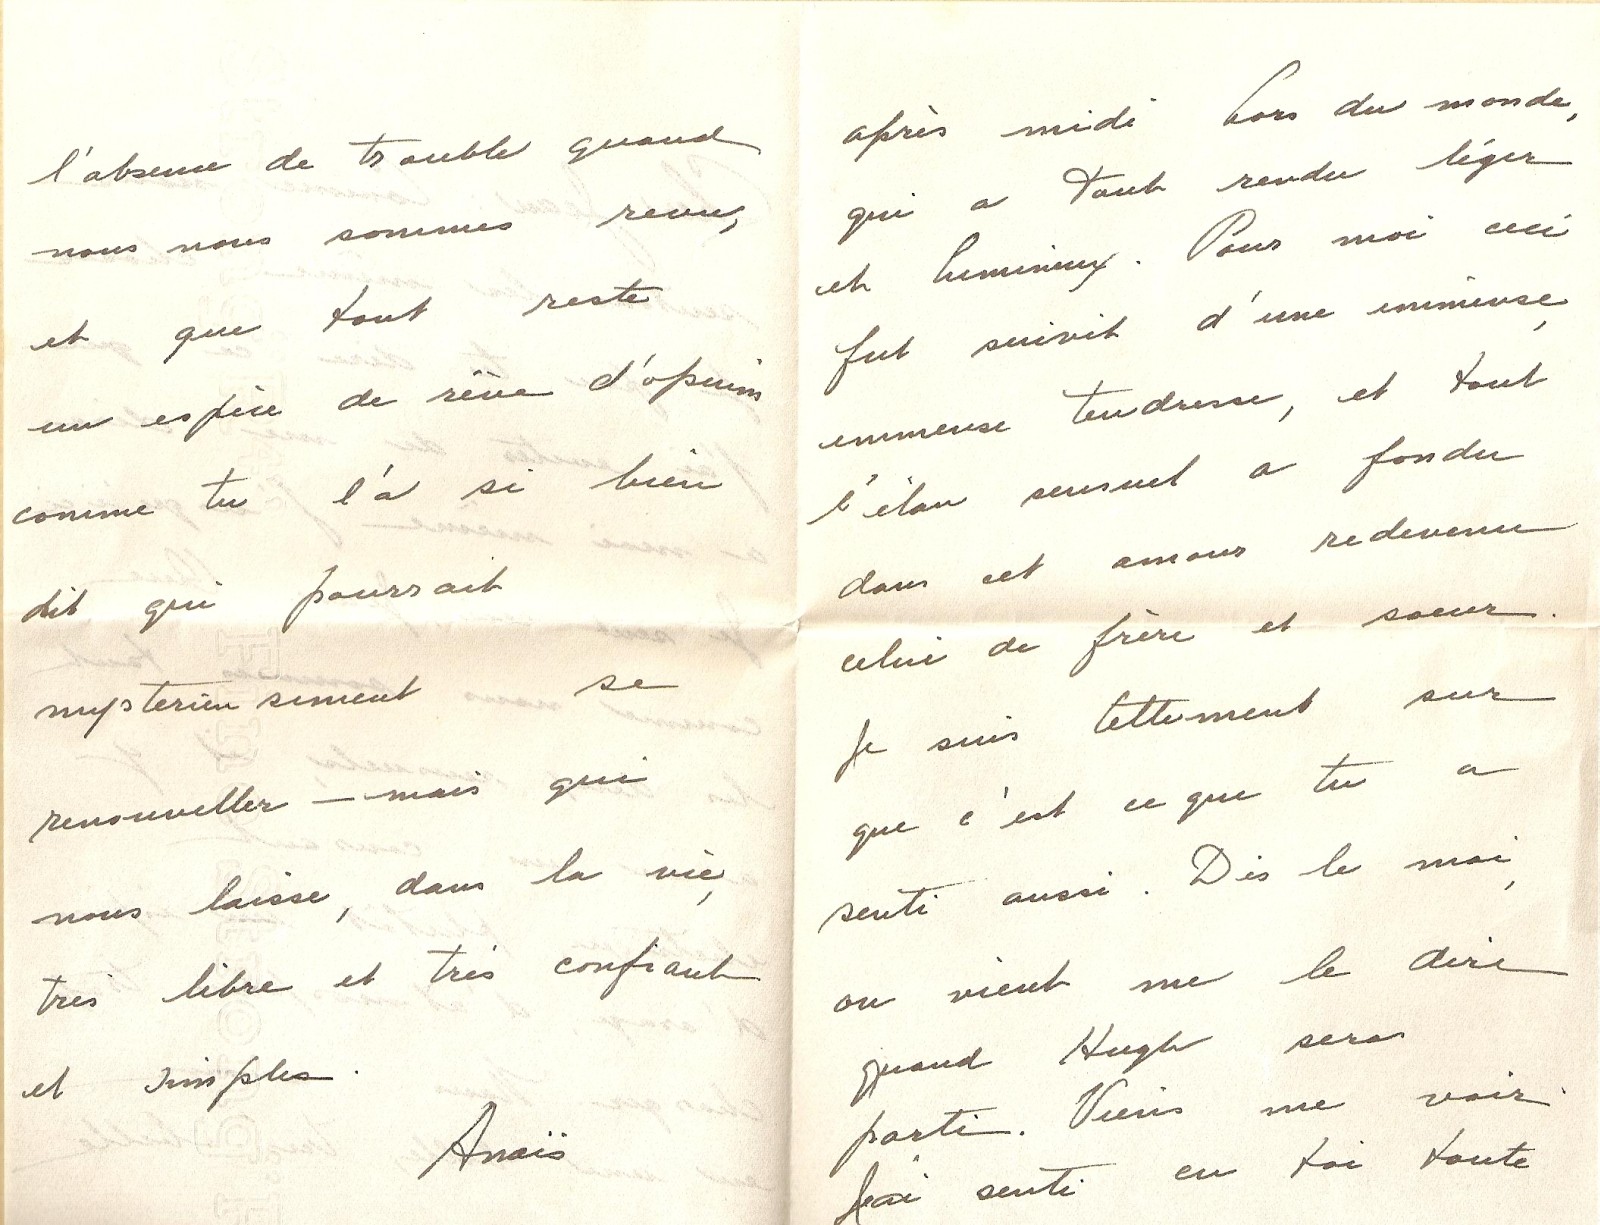 après midi hors du monde,
qui a tout rendu léger
et lumineux. Pour moi ceci
fut suivit d'une immense,
immense tendresse, et tout
l'élan sensuel a fondu
dans cet amour redevenu
celui de frère et soeur.
Je suis tellement sur
que c'est ce que tu a
senti aussi. Dis le moi,
ou vient me le dire
quand Hugh sera
parti. Viens me voir.
J'ai senti en toi toute
l'absence de trouble quand
nous nous sommes revu,
et que tout reste
un espèce de rêve d'opium
comme tu l'a si bien
dit qui pourrait
mysterieusement se
renouveller – mais qui
nous laisse, dans la vie,
très libre et très confiant
et simples.
Anaïs